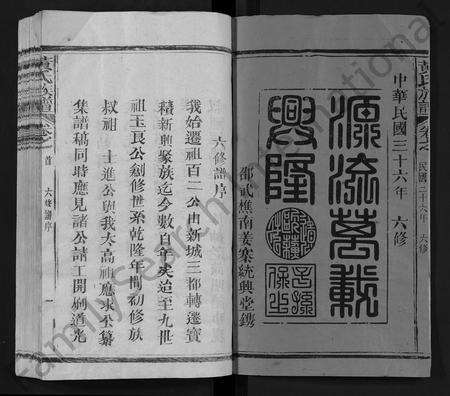 黃氏族譜 卷之 民國三十六年 六修
中華民國三十六年 六修
源流萬載
興隆
邵武樵南萋寀統興堂鐫
六修譜序
我始遷祖百二公由新城三都轉遷寳
積新興聚族迄今數百年矣迨至九世
祖玉艮公創修世系乾隆年間初修族
叔祖 士進公與我大高祖應求公纂
集譜稿同時應見諸公請工開刷道光
黃氏族譜 卷之首 六修譜序 一
FamilySearch International